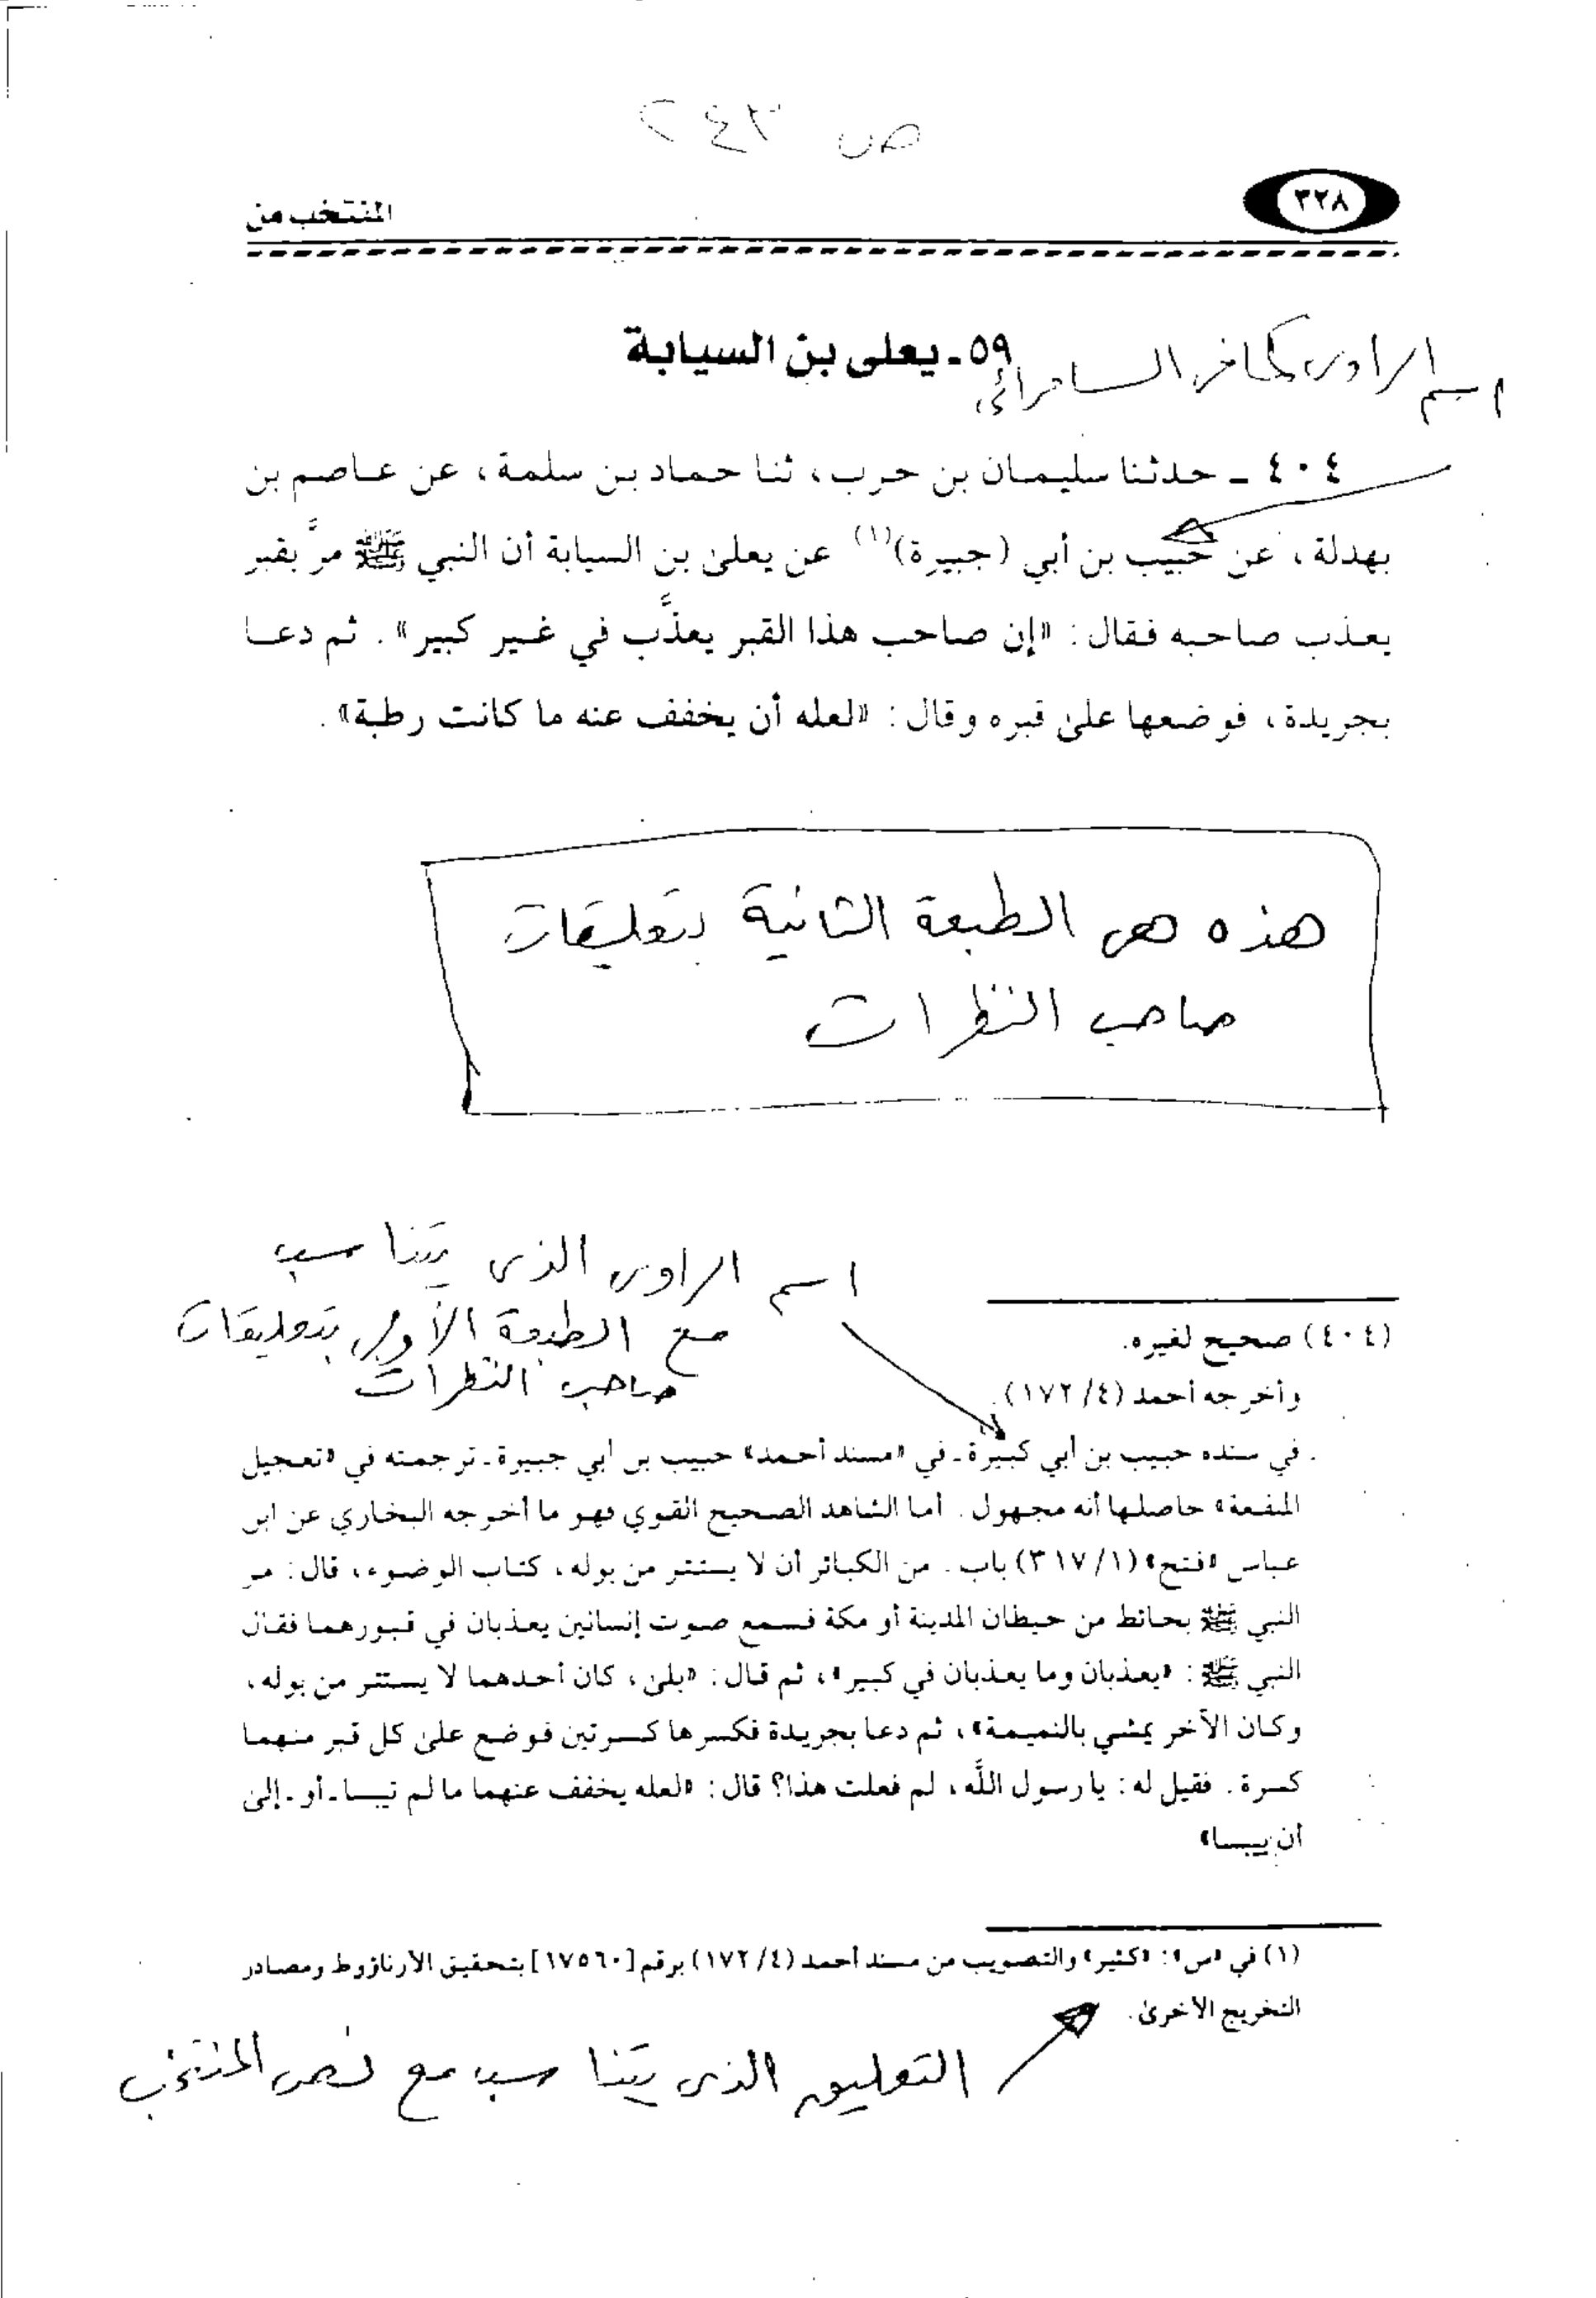 ص ٢٤٣
٣٢٨
المنتخب من
٥٩ـ يعلى بن السيابة
اسم الراوى كما فى السامرائى
٤٠٤ ـ حدثنا سليمان بن حرب، ثنا حماد بن سلمة، عن عاصم بن
بهدلة، عن حبيب بن أبي (جبيرة)(١) عن يعلىٰ بن السيابة أن النبي ﷺ مرَّ بقبر
يعذب صاحبه فقال: «إن صاحب هذا القبر يعذَّب في غير كبير». ثم دعا
بجريدة، فوضعها علىٰ قبره وقال: «لعله أن يخفف عنه ما كانت رطبة».
هذه هى الطبعة الثانية بتعليقات
صاحب النظرات
اسم الراوى الذى يتناسب
مع الطبعة الأولى بتعليقات
صاحب النظرات
(٤٠٤) صحيح لغيره.
وأخرجه أحمد (٤/ ١٧٢).
في سنده حبيب بن أبي كبيرة ـ في «مسند أحمد» حبيب بن أبي جبيرة ـ ترجمته في «تعجيل
المنفعة» حاصلها أنه مجهول. أما الشاهد الصحيح القوي فهو ما أخرجه البخاري عن ابن
عباس «فتح» (١/ ٣١٧) باب. من الكبائر أن لا يستتر من بوله، كتاب الوضوء، قال: مر
النبي ﷺ بحائط من حيطان المدينة أو مكة فسمع صوت إنسانين يعذبان في قبورهما فقال
النبي ﷺ: «يعذبان وما يعذبان في كبير»، ثم قال: «بلىٰ، كان أحدهما لا يستتر من بوله،
وكان الآخر يمشي بالنميمة»، ثم دعا بجريدة فكسرها كسرتين فوضع علىٰ كل قبر منهما
كسرة. فقيل له: يا رسول اللَّه، لم فعلت هذا؟ قال: «لعله يخفف عنهما ما لم تيبسا ـ أو ـ إلىٰ
أن ييبسا»
(١) في «س»: «كثير» والتصويب من مسند أحمد (٤/ ١٧٢) برقم [١٧٥٦٠] بتحقيق الأرناؤوط ومصادر
التخريج الأخرىٰ.
التعليق الذى يتناسب مع نص المنتخب